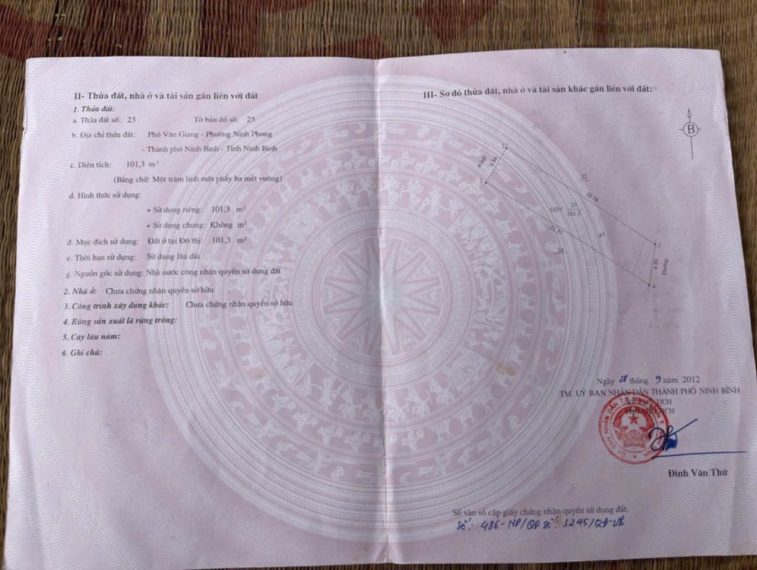 II- Thửa đất, nhà ở và tài sản gắn liền với đất
1. Thửa đất:
a. Thửa đất số: 23 Tờ bản đồ số: 25
b. Địa chỉ thửa đất: Phố Văn Giang - Phường Ninh Phong
- Thành phố Ninh Bình - Tỉnh Ninh Bình
c. Diện tích: 101,3 m²
(Bằng chữ: Một trăm linh một phẩy ba mét vuông)
d. Hình thức sử dụng:
+ Sử dụng riêng: 101,3 m²
+ Sử dụng chung: Không m²
đ. Mục đích sử dụng: Đất ở tại Đô thị 101,3 m²
e. Thời hạn sử dụng: Sử dụng lâu dài
g. Nguồn gốc sử dụng: Nhà nước công nhận quyền sử dụng đất
2. Nhà ở: Chưa chứng nhận quyền sở hữu
3. Công trình xây dựng khác: Chưa chứng nhận quyền sở hữu
4. Rừng sản xuất là rừng trồng:
5. Cây lâu năm:
6. Ghi chú:
III- Sơ đồ thửa đất, nhà ở và tài sản khác gắn liền với đất:
B
22
ODT 23
101.3
24
Đường
Ngày 28 tháng 9 năm 2012
TM. UỶ BAN NHÂN DÂN THÀNH PHỐ NINH BÌNH
Đinh Văn Thứ
Số vào sổ cấp giấy chứng nhận quyền sử dụng đất: